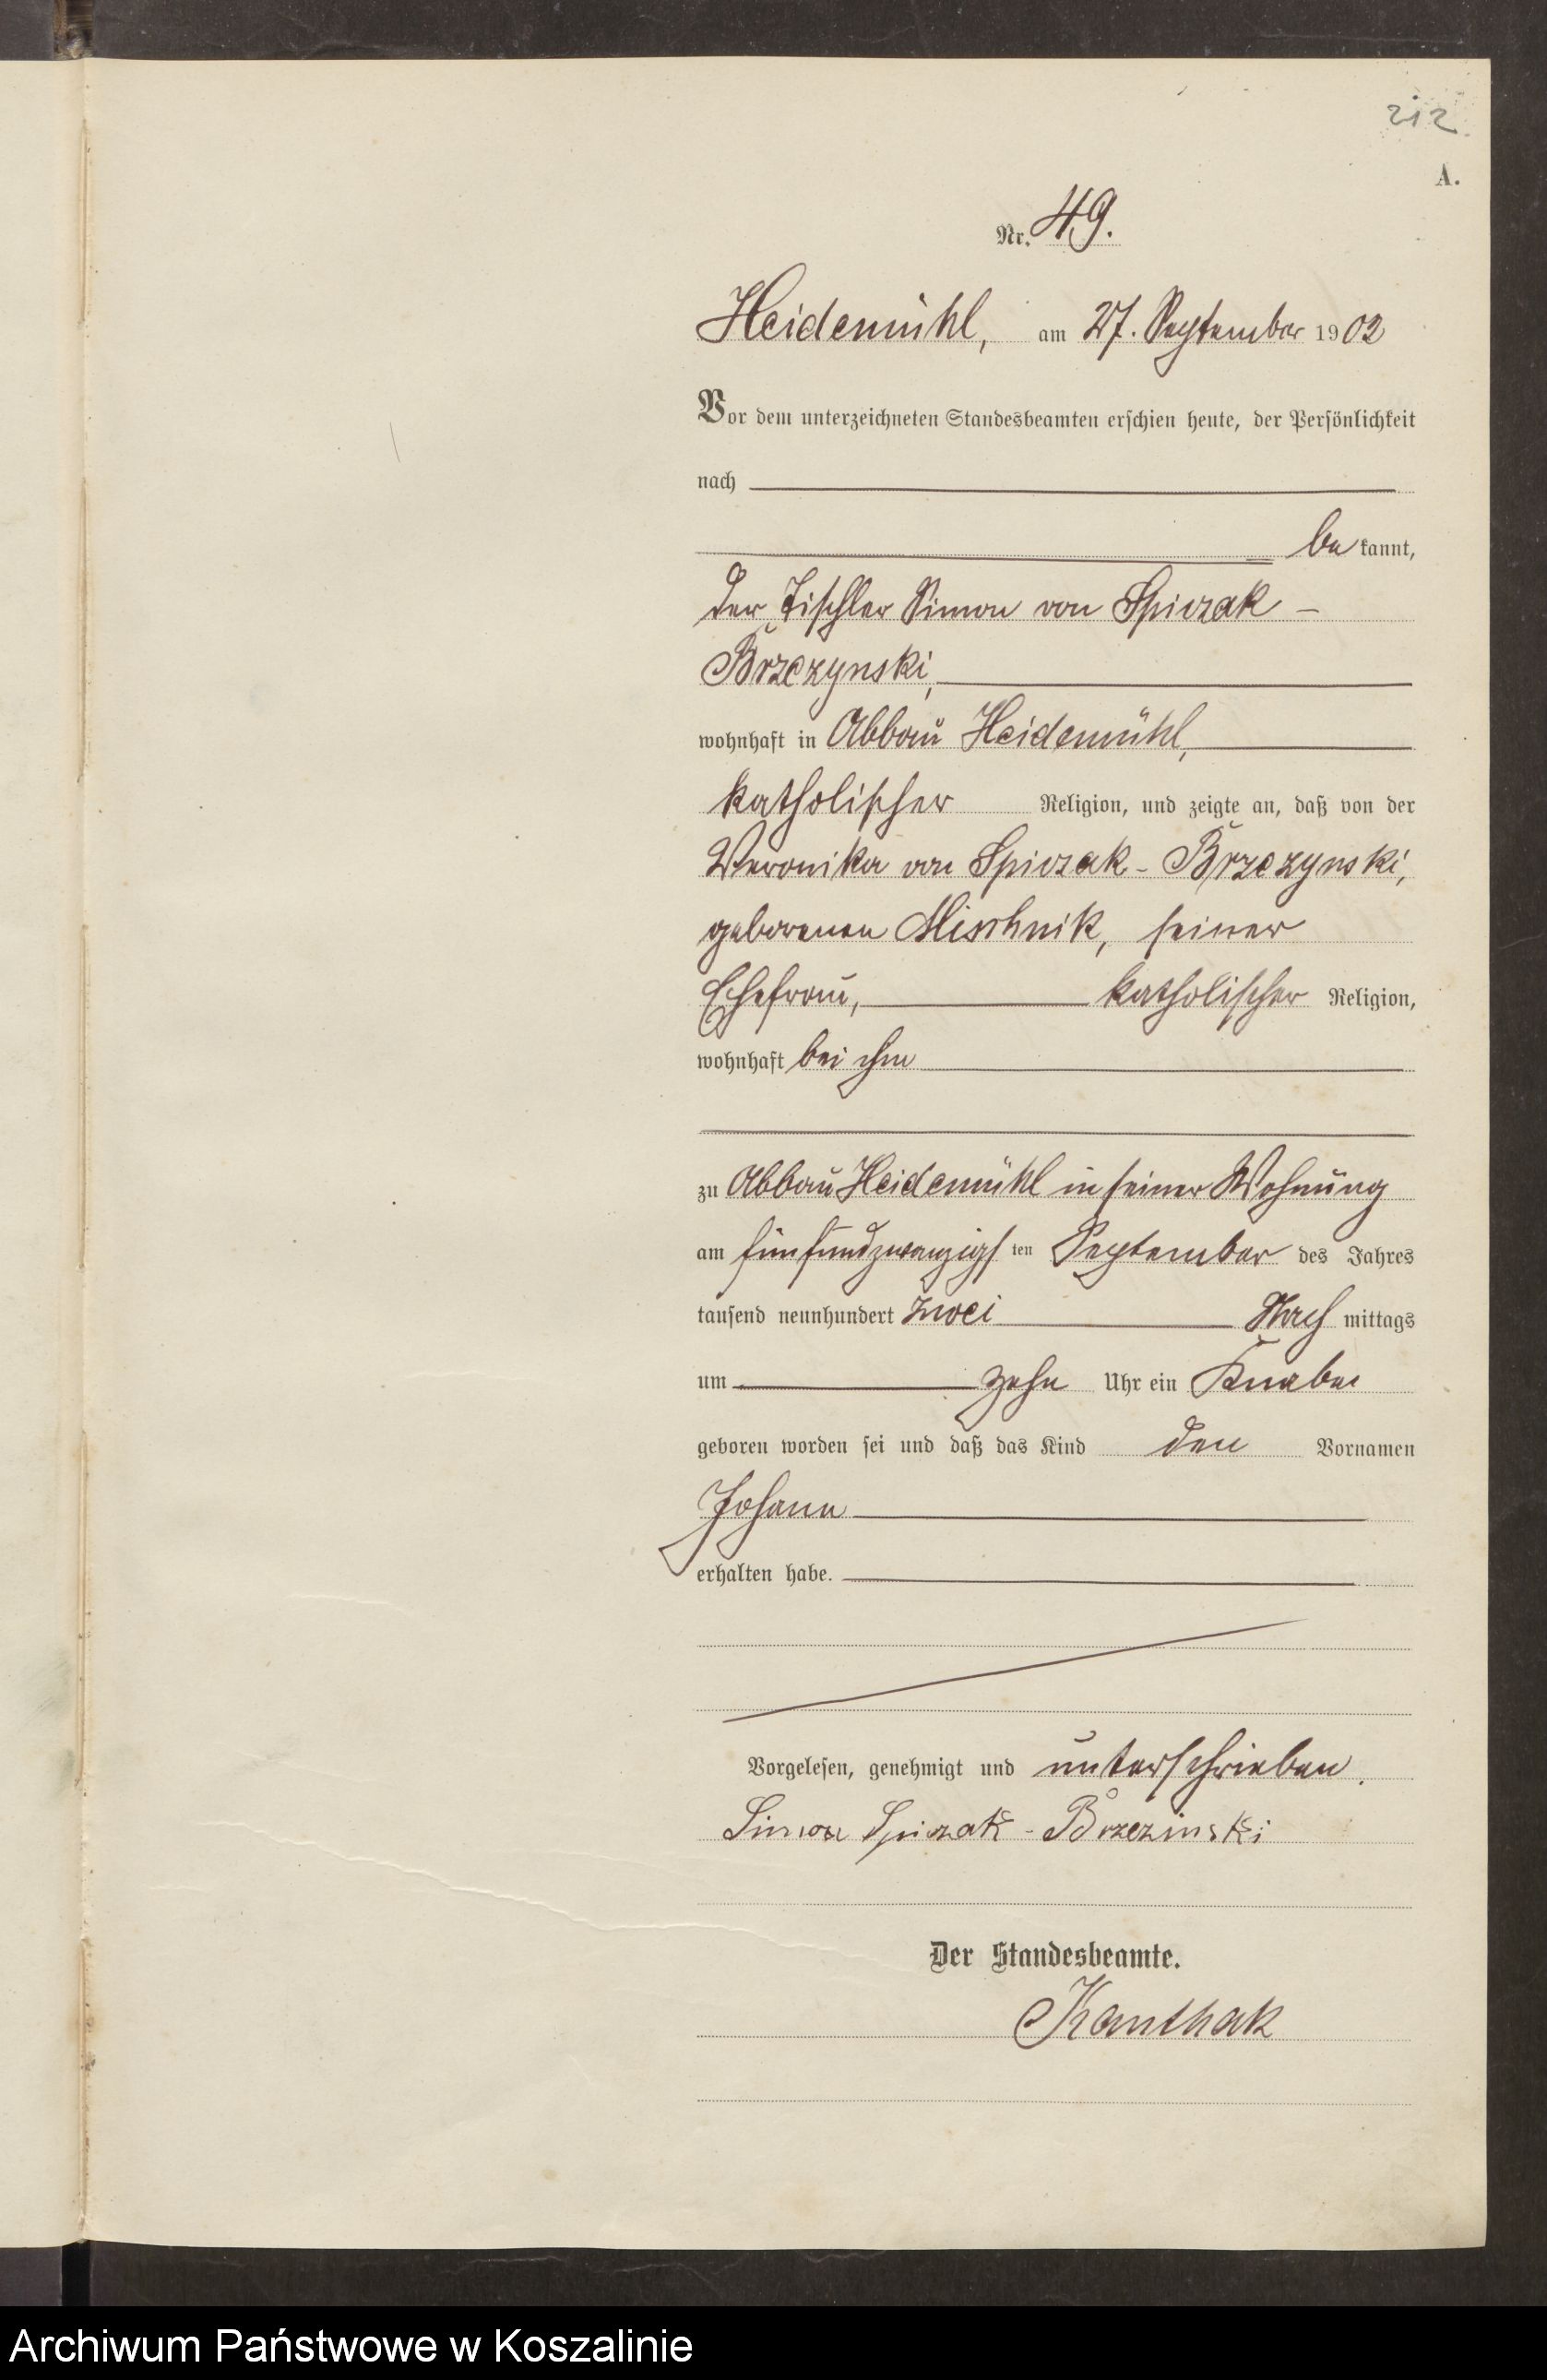 212
A.
Nr. 49.
Heidemühl, am 27. September 1902
Vor dem unterzeichneten Standesbeamten erschien heute, der Persönlichkeit
nach
be kannt,
der Tischler Simon von Spiczak -
Brzezynski,
wohnhaft in Abbau Heidemühl,
katholischer Religion, und zeigte an, daß von der
Weronika von Spiczak - Brzezynski,
geborenen Mischnik, seiner
Ehefrau, katholischer Religion,
wohnhaft bei ihm
zu Abbau Heidemühl in seiner Wohnung
am fünfundzwanzigs ten September des Jahres
tausend neunhundert zwei Nach mittags
um zehn Uhr ein Knabe
geboren worden sei und daß das Kind den Vornamen
Johann
erhalten habe.
Vorgelesen, genehmigt und unterschrieben.
Simon Spiczak - Brzezinski
Der Standesbeamte.
Kanthak
Archiwum Państwowe w Koszalinie